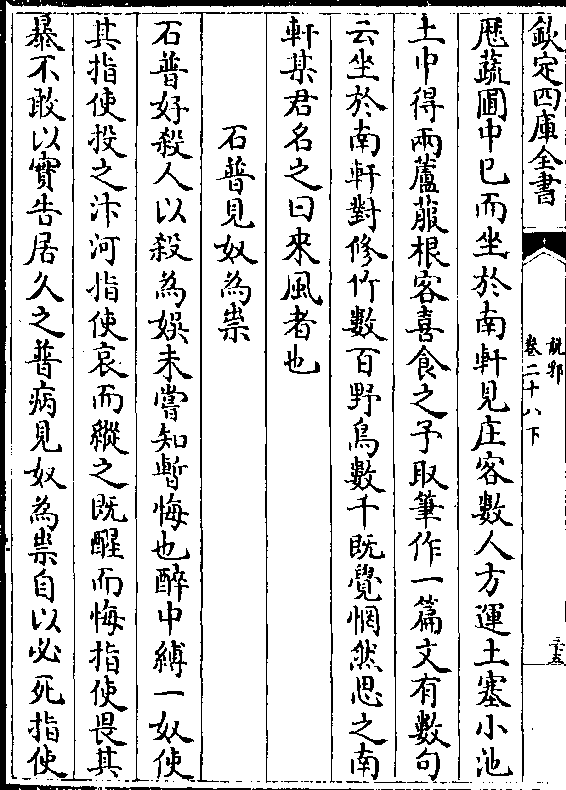 欽定四庫全書
說郛
卷二十八下
三十五
歷蔬圃中已而坐於南軒見庄客數人方運土塞小池
土中得兩蘆菔根客喜食之予取筆作一篇文有數句
云坐於南軒對修竹數百野鳥數千既覺惘然思之南
軒某君名之曰來風者也
石普見奴為祟
石普好殺人以殺為娛未嘗知暫悔也醉中縛一奴使
其指使投之汴河指使哀而縱之既醒而悔指使畏其
暴不敢以實告居久之普病見奴為祟自以必死指使